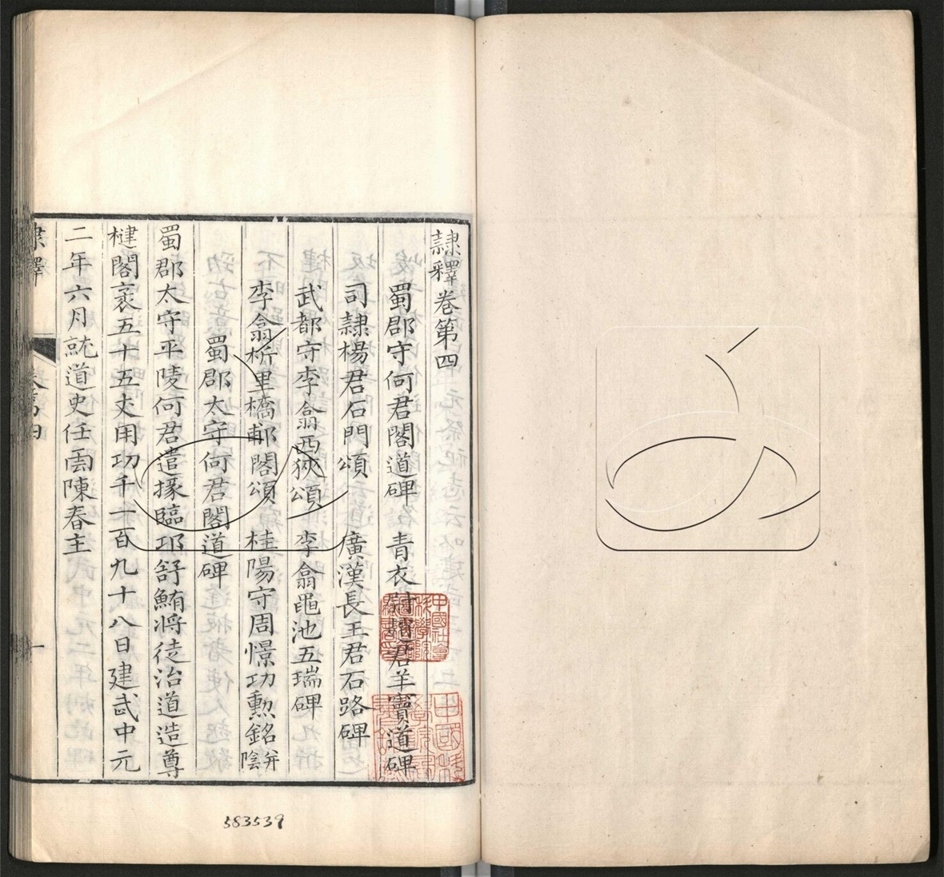 隷釋卷第四
蜀郡守何君閣道碑 青衣尉趙君羊竇道碑
司隷楊君石門頌 廣漢長王君石路碑
武都守李翕西狹頌 李翕黽池五瑞碑
李翕析里橋郙閣頌 桂陽守周憬功勲銘并陰
蜀郡太守何君閣道碑
蜀郡太守平陵何君遣掾臨邛舒鮪将徒治道造尊
楗閣袤五十五丈用功千一百九十八日建武中元
二年六月就道史任雲陳春主
隷釋
卷第四
一
383539